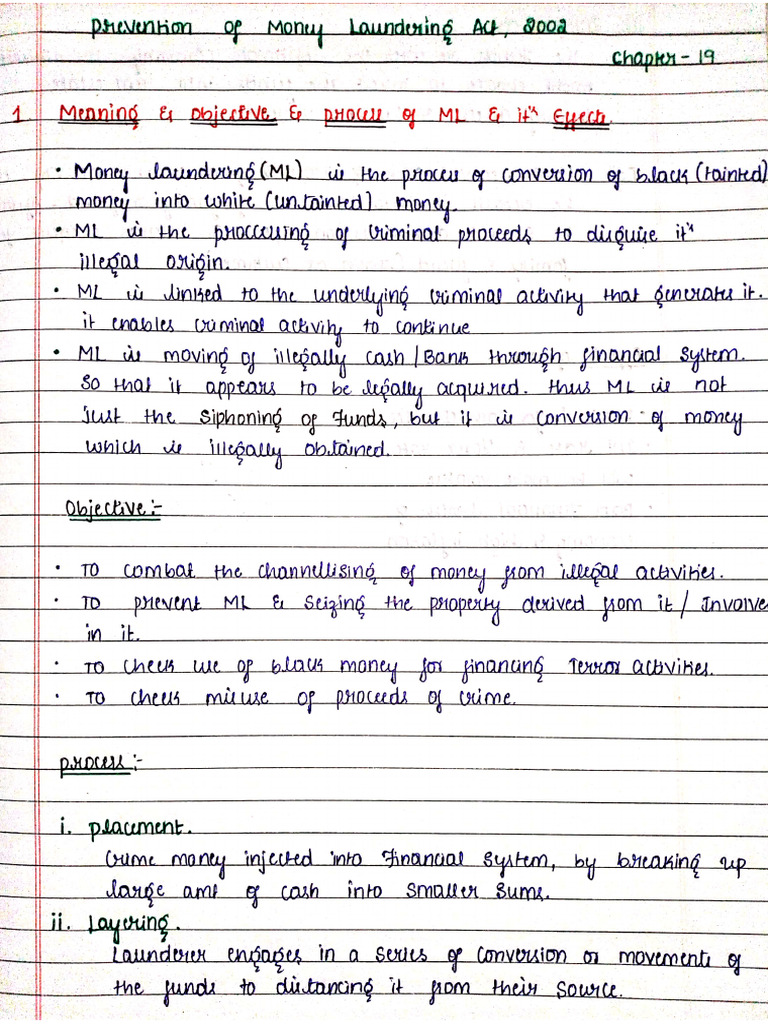 Prevention of Money Laundering Act, 2002
Chapter - 19
1. Meaning & Objective & process of ML & it's Effects
• Money laundering (ML) is the process of conversion of black (tainted)
money into white (untainted) money.
• ML is the proccessing of criminal proceeds to disguise it's
illegal origin.
• ML is linked to the underlying criminal activity that generates it.
it enables criminal activity to continue
• ML is moving of illegally cash / Bank through financial system.
So that it appears to be legally acquired. thus ML is not
just the Siphoning of Funds, but it is conversion of money
which is illegally obtained.
Objective :-
• To combat the channellising of money from illegal activities.
• To prevent ML & Seizing the property derived from it / Involve
in it.
• To check use of black money for financing Terror activities.
• To check misuse of proceeds of crime.
process :-
i. placement.
Crime money injected into Financial System, by breaking up
large amt of cash into smaller sums.
ii. Layering.
Launderer engages in a series of conversion or movements of
the funds to distancing it from their source.